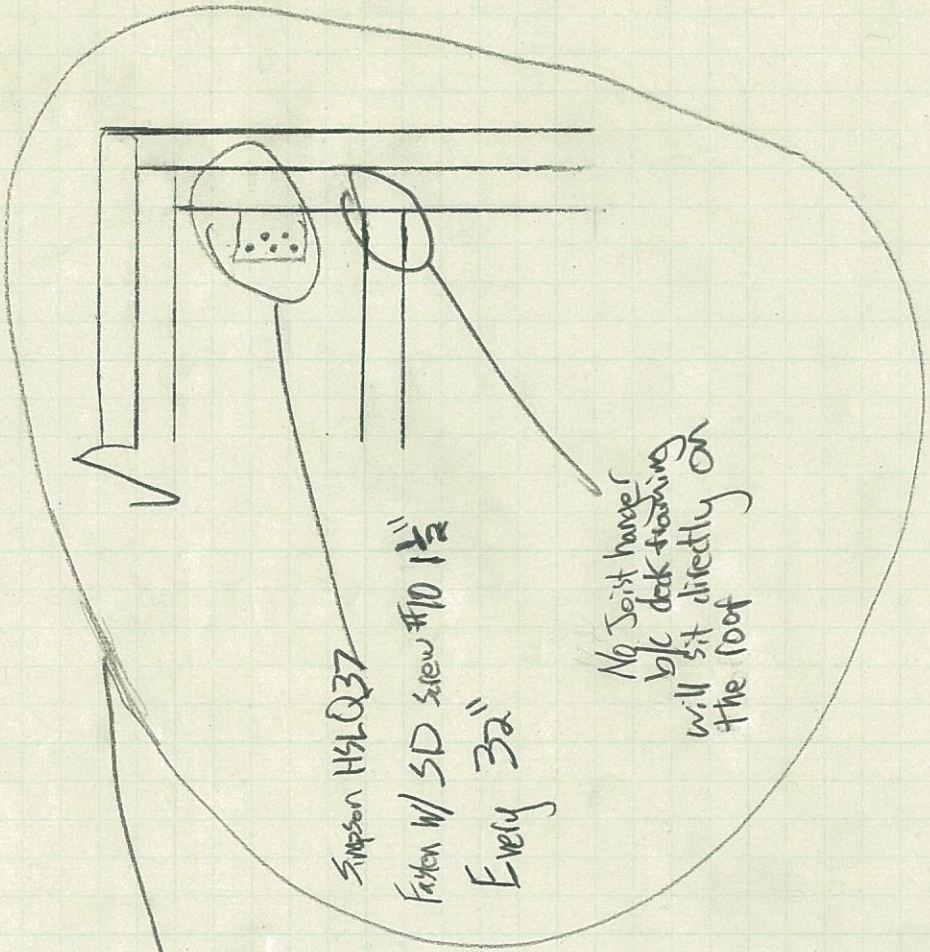 Simpson HSLQ37
Fasten W/ SD Screw #10 1 1/2"
Every 32"
No Joist hanger
b/c deck framing
will sit directly on
the roof